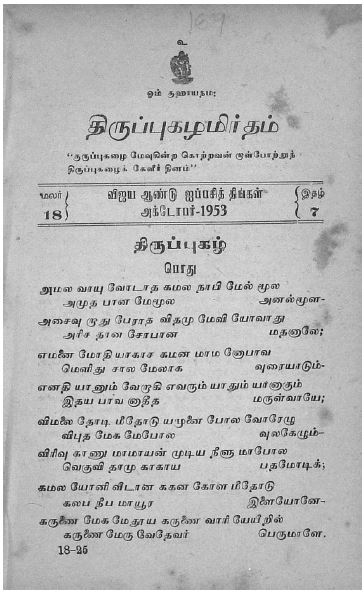 உ
ஓம் குஹாயநம:
திருப்புகழமிர்தம்
"குருப்புகழை மேவுகின்ற கொற்றவன் முன்போற்றுந்
திருப்புகழைக் கேளீர் தினம்"
மலர் 18 விஜய ஆண்டு ஐப்பசித் திங்கள் இதழ் 7
அக்டோபர்-1953
திருப்புகழ்
பொது
அமல வாயு வோடாத கமல நாபி மேல் மூல
அமுத பான மேமூல அனல்மூள-
அசைவு றாது பேராத விதமு மேவி யோவாது
அரிச தான சோபான மதனாலே;
எமனை மோதி யாகாச கமன மாம னோபாவ
மெளிது சால மேலாக வுரையாடும்-
எனதி யானும் வேறாகி எவரும் யாதும் யானாகும்
இதய பாவ னாதீத மருள்வாயே;
விமலை தோடி மீதோடு யமுனை போல வோரேழு
விபுத மேக மேபோல வுலகேழும்-
விரிவு காணு மாமாயன் முடிய நீளு மாபோல
வெகுவி தாமு காகாய பதமோடிக்;
கமல யோனி வீடான ககன கோள மீதோடு
கலப நீப மாயூர இளையோனே-
கருணை மேக மேதூய கருணை வாரி யேயீறில்
கருணை மேரு வேதேவர் பெருமாளே.
18-25